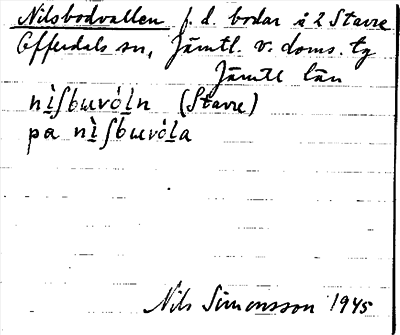 Nilsbodvallen f. d. bodar å 2 Stavre
Offerdals sn, Jämtl. v. doms. tg
Jämtl län
nìʃbɯvóln (Stavre)
pa nìʃbɯvóla
Nils Simonsson 1945